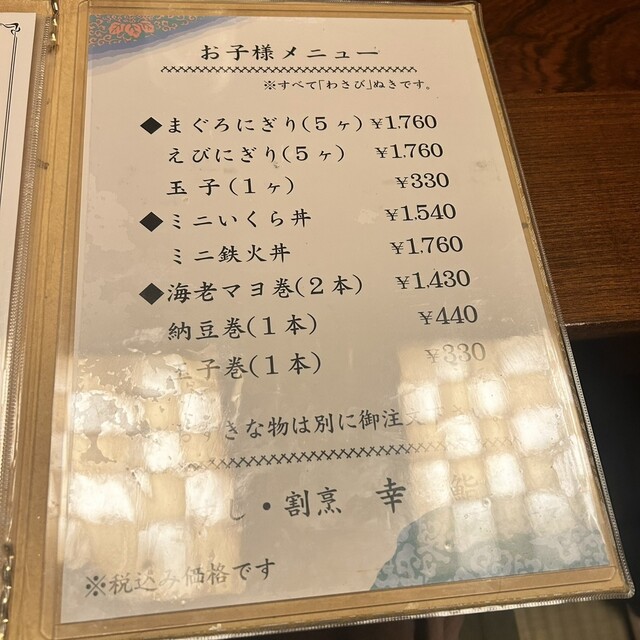 お子様メニュー
※すべて「わさび」ぬきです。
◆まぐろにぎり(5ヶ) ¥1.760
えびにぎり(5ヶ) ¥1.760
玉子(1ヶ) ¥330
◆ミニいくら丼 ¥1.540
ミニ鉄火丼 ¥1.760
◆海老マヨ巻(2本) ¥1.430
納豆巻(1本) ¥440
玉子巻(1本) ¥330
きな物は別に御注
し・割烹 幸 鮨
※税込み価格です